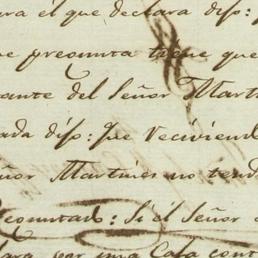 ara el que declara dijo:
e presunta tiene que
ante del Señor Mart
ada dijo: Que reciviend
ñor Martines no tend
econutad: Si el Señor
lara por una Casa cont